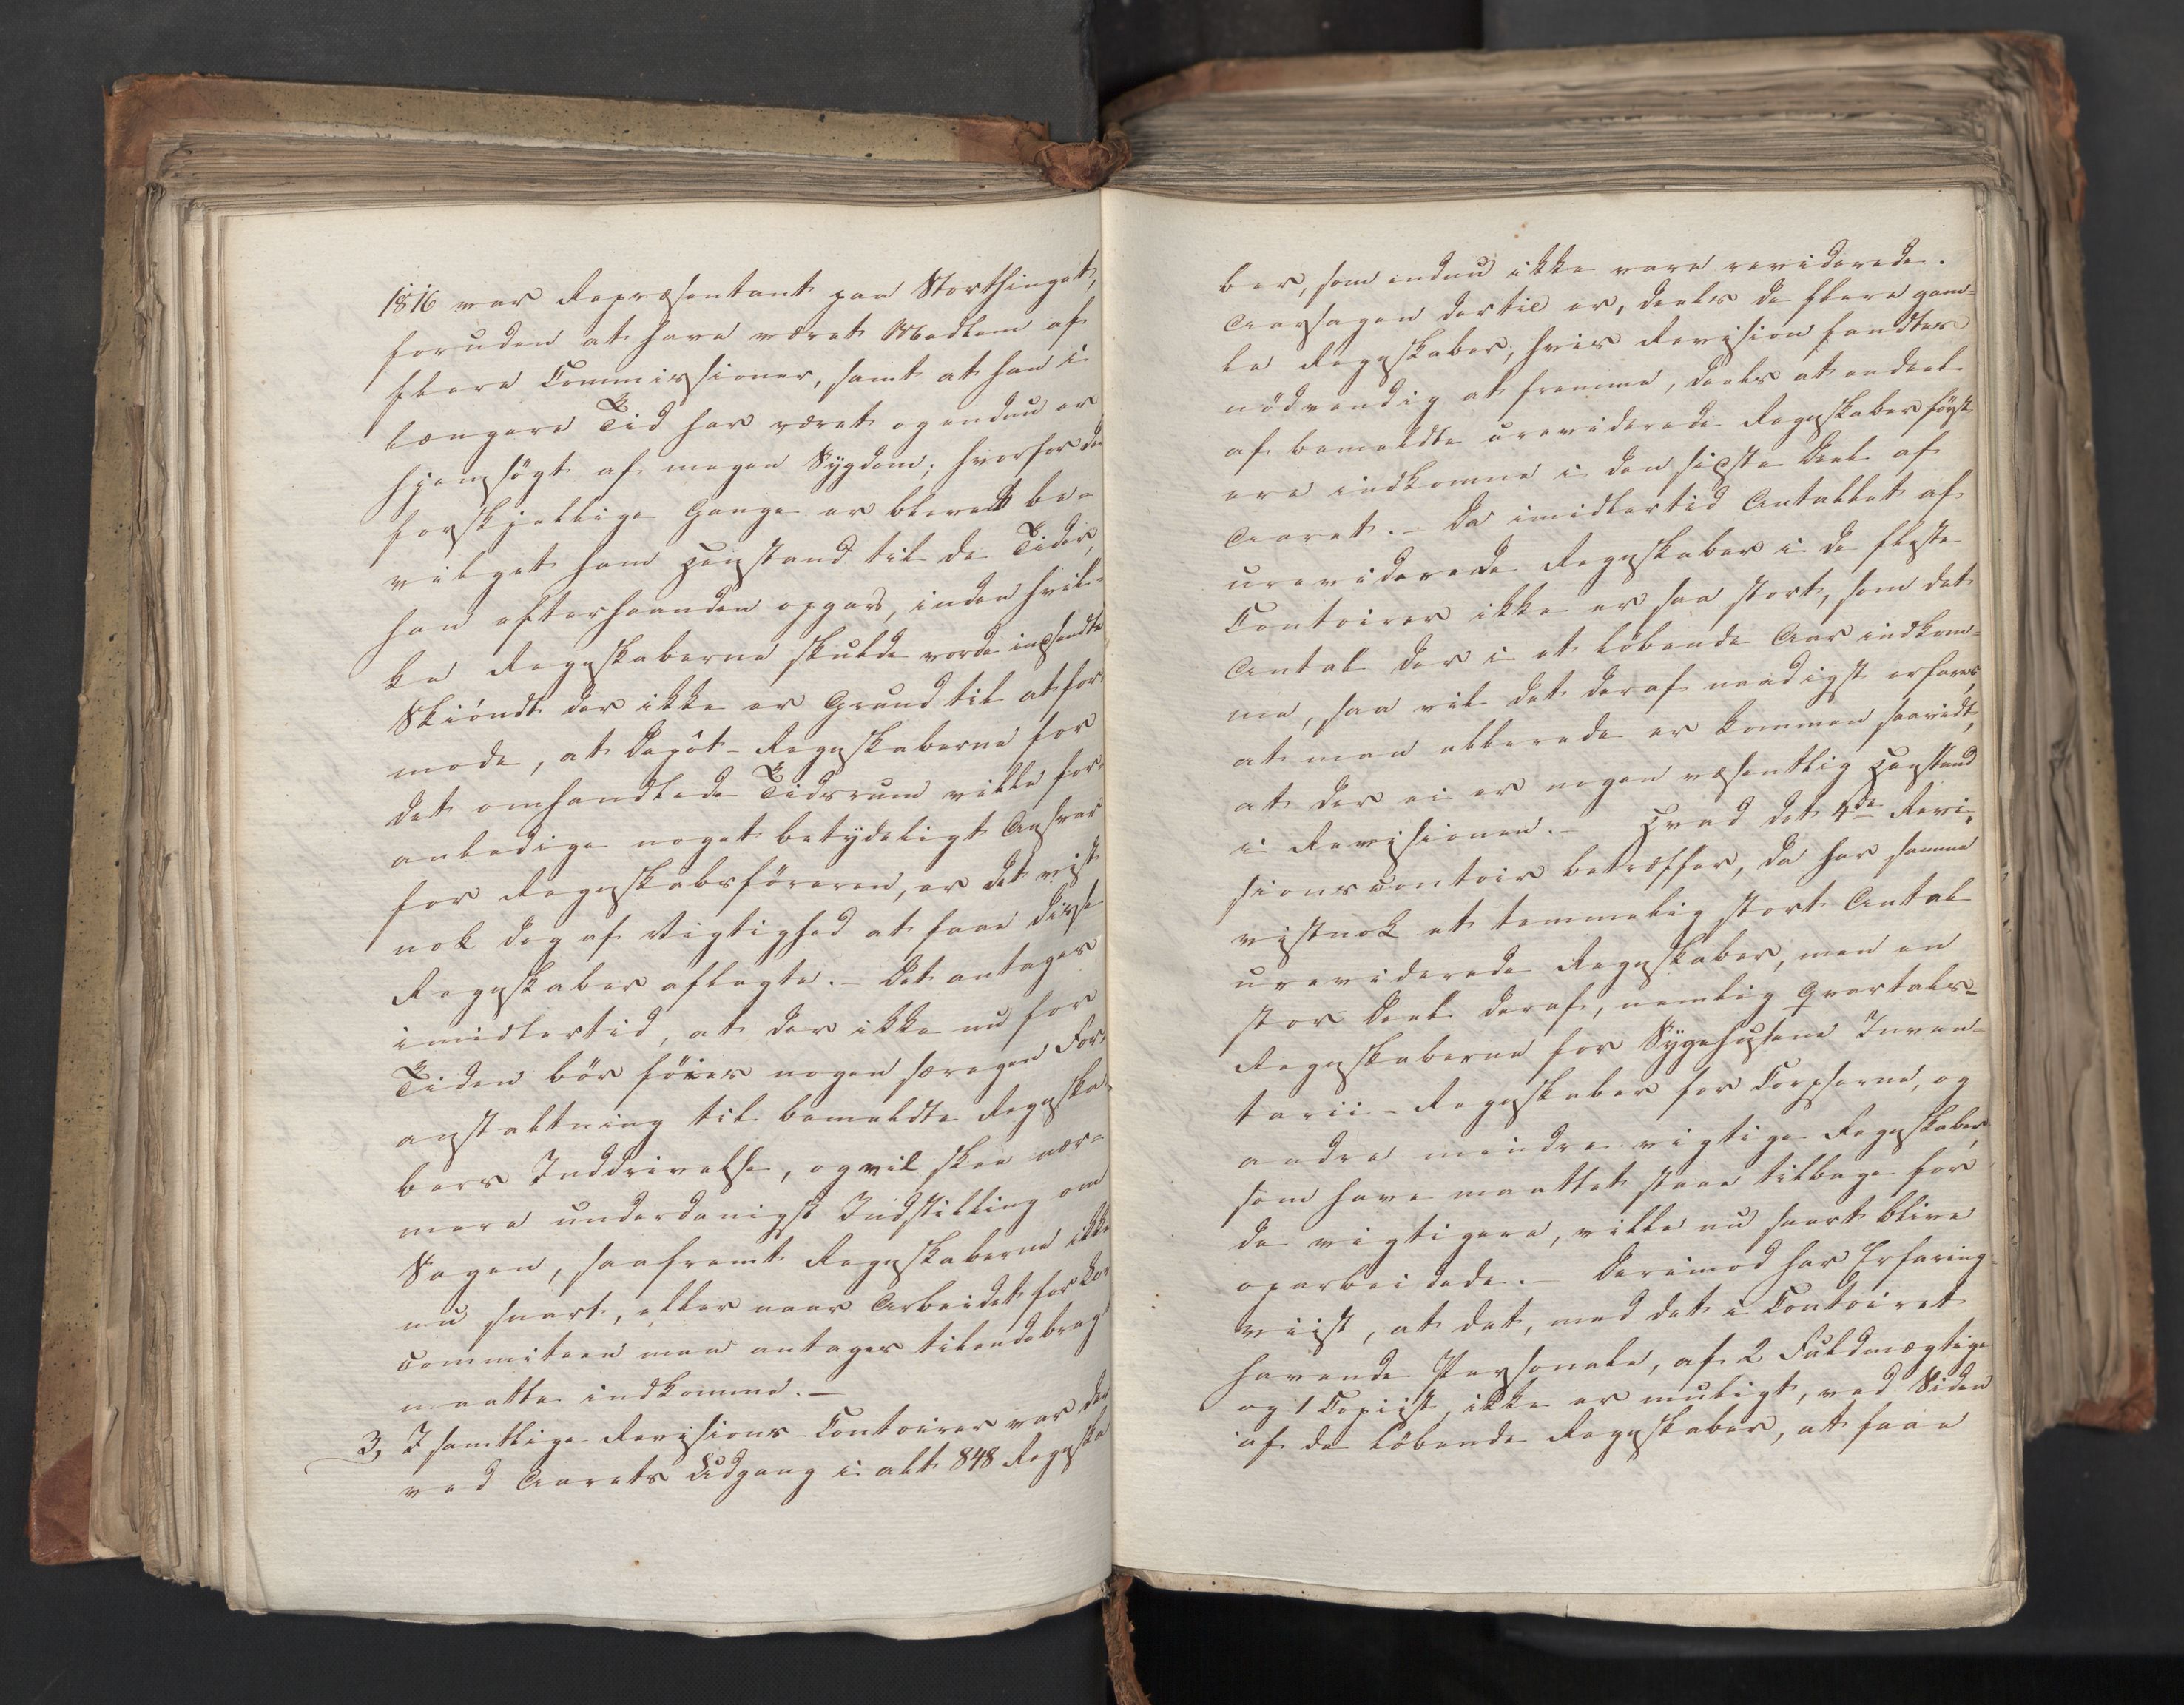 1816 var Repræsentant paa Storthinget,
foruden at have været Medlem af
flere Commissioner, samt at han i
længere Tid har været og endnu er
hjemsögt af megen Sygdom; hvorfor der
forskjellige Gange er blevet be-
vilget ham Henstand til de Tider,
han efterhaanden opgav, inden hvil-
ke Regnskaberne skulde vorde indsendte
Skiöndt der ikke er Grund til at for
mode, at Depôt-Regnskaberne for
det omhandlede Tidsrum ville for-
anledige noget betydeligt Ansvar
for Regnskabsföreren, er det vist
nok dog af Vigtighed at faae disse
Regnskaber aflagte. - Det antages
imidlertid, at der ikke nu for
Tiden bör föies nogen særegen For-
anstaltning til bemeldte Regnska-
bers Inddrivelse, og vil skee nær-
mere underdanigst Indstilling om
Sagen, saafremt Regnskaberne ikke
nu snart, eller naar Arbeidet for Lov
Committeen maa antages tilendebragt
maatte indkomme. -
3, I samtlige Revisions-Contoirer var der
ved Aarets Udgang i alt 848 Regnska
ber, som endnu ikke vare reviderede.
Aarsagen dertil er, deels de flere gam-
le Regnskaber, hvis Revision fandtes
nödvendig at fremme, deels at endeel
af bemeldte ureviderede Regnskaber först
ere indkomne i den sidste Deel af
Aaret. - Da imidlertid Antallet af
ureviderede Regnskaber i de fleste
Contoirer ikke er saa stort, som det
Antal der i et löbende Aar indkom-
me, saa vil det deraf naadigst erfares,
at man allerede er kommen saavidt,
at der ei er nogen væsentlig Henstand
i Revisionen. - Hvad det 4de Revi-
sionscontoir betræffer, da har samme
vistnok et temmelig stort Antal
ureviderede Regnskaber, men en
stor Deel deraf, nemlig Qvartals-
Regnskaberne for Sygehusene Inven-
tarii-Regnskaber for Corpserne, og
andre mindre vigtige Regnskaber,
som have maattet staae tilbage for
de vigtigere, ville nu snart blive
oparbeidede. - Derimod har Erfaring
viist, at det, med det i Contoiret
havende Personale, af 2 Fuldmægtige
og 1 Copiist, ikke er muligt, ved Siden
af de löbende Regnskaber, at faae